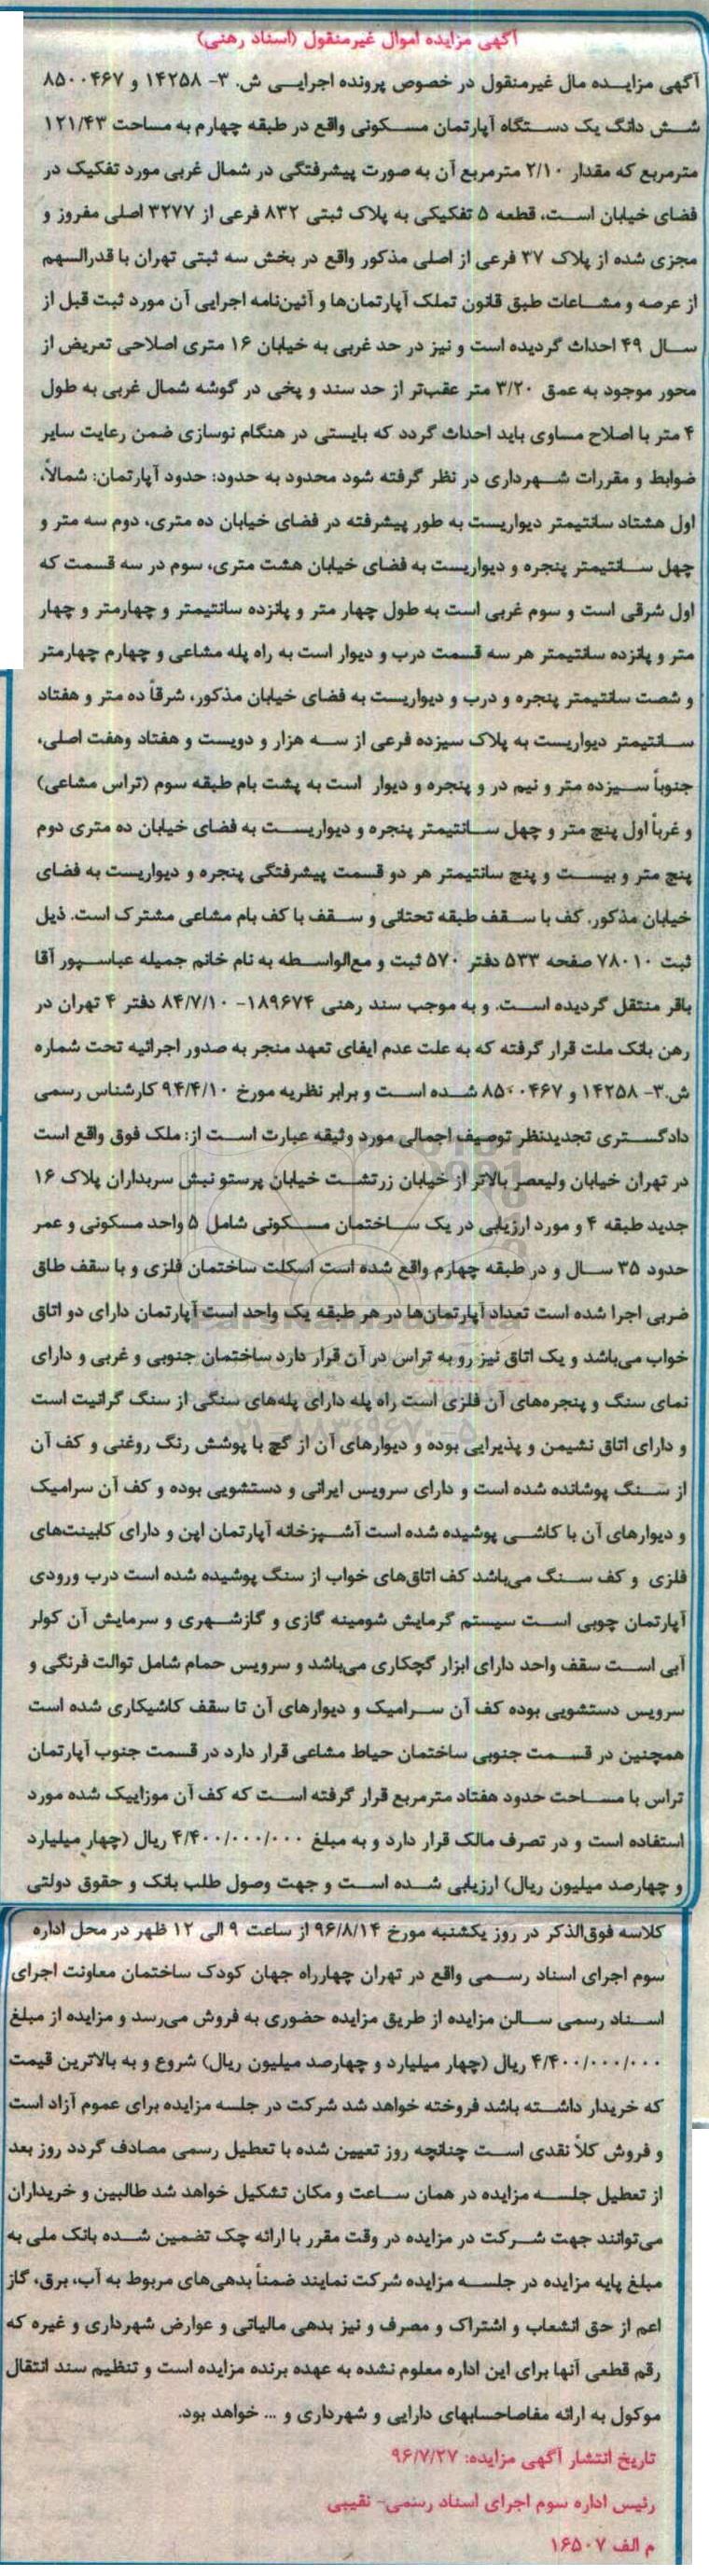 آگهی مزایده اموال غیرمنقول (اسناد رهنی)
آگهی مزایده مال غیرمنقول در خصوص پرونده اجرایی ش. ۳- ۱۴۲۵۸ و ۸۵۰۰۴۶۷
شش دانگ یک دستگاه آپارتمان مسکونی واقع در طبقه چهارم به مساحت ۱۲۱/۴۳
مترمربع که مقدار ۲/۱۰ مترمربع آن به صورت پیشرفتگی در شمال غربی مورد تفکیک در
فضای خیابان است، قطعه ۵ تفکیکی به پلاک ثبتی ۸۳۲ فرعی از ۳۲۷۷ اصلی مفروز و
مجزی شده از پلاک ۳۷ فرعی از اصلی مذکور واقع در بخش سه ثبتی تهران با قدرالسهم
از عرصه و مشاعات طبق قانون تملک آپارتمان‌ها و آئین‌نامه اجرایی آن مورد ثبت قبل از
سال ۴۹ احداث گردیده است و نیز در حد غربی به خیابان ۱۶ متری اصلاحی تعریض از
محور موجود به عمق ۳/۲۰ متر عقب‌تر از حد سند و پخی در گوشه شمال غربی به طول
۴ متر با اصلاح مساوی باید احداث گردد که بایستی در هنگام نوسازی ضمن رعایت سایر
ضوابط و مقررات شهرداری در نظر گرفته شود محدود به حدود: حدود آپارتمان: شمالاً،
اول هشتاد سانتیمتر دیواریست به طور پیشرفته در فضای خیابان ده متری، دوم سه متر و
چهل سانتیمتر پنجره و دیواریست به فضای خیابان هشت متری، سوم در سه قسمت که
اول شرقی است و سوم غربی است به طول چهار متر و پانزده سانتیمتر و چهارمتر و چهار
متر و پانزده سانتیمتر هر سه قسمت درب و دیوار است به راه پله مشاعی و چهارم چهارمتر
و شصت سانتیمتر پنجره و درب و دیواریست به فضای خیابان مذکور، شرقاً ده متر و هفتاد
سانتیمتر دیواریست به پلاک سیزده فرعی از سه هزار و دویست و هفتاد وهفت اصلی،
جنوباً سیزده متر و نیم در و پنجره و دیوار است به پشت بام طبقه سوم (تراس مشاعی)
و غرباً اول پنج متر و چهل سانتیمتر پنجره و دیواریست به فضای خیابان ده متری دوم
پنج متر و بیست و پنج سانتیمتر هر دو قسمت پیشرفتگی پنجره و دیواریست به فضای
خیابان مذکور. کف با سقف طبقه تحتانی و سقف با کف بام مشاعی مشترک است. ذیل
ثبت ۷۸۰۱۰ صفحه ۵۳۳ دفتر ۵۷۰ ثبت و مع‌الواسطه به نام خانم جمیله عباسپور آقا
باقر منتقل گردیده است. و به موجب سند رهنی ۱۸۹۶۷۴- ۸۴/۷/۱۰ دفتر ۴ تهران در
رهن بانک ملت قرار گرفته که به علت عدم ایفای تعهد منجر به صدور اجرائیه تحت شماره
ش.۳- ۱۴۲۵۸ و ۸۵۰۰۴۶۷ شده است و برابر نظریه مورخ ۹۴/۴/۱۰ کارشناس رسمی
دادگستری تجدیدنظر توصیف اجمالی مورد وثیقه عبارت است از: ملک فوق واقع است
در تهران خیابان ولیعصر بالاتر از خیابان زرتشت خیابان پرستو نبش سربداران پلاک ۱۶
جدید طبقه ۴ و مورد ارزیابی در یک ساختمان مسکونی شامل ۵ واحد مسکونی و عمر
حدود ۳۵ سال و در طبقه چهارم واقع شده است اسکلت ساختمان فلزی و با سقف طاق
ضربی اجرا شده است تعداد آپارتمان‌ها در هر طبقه یک واحد است آپارتمان دارای دو اتاق
خواب می‌باشد و یک اتاق نیز رو به تراس در آن قرار دارد ساختمان جنوبی و غربی و دارای
نمای سنگ و پنجره‌های آن فلزی است راه پله دارای پله‌های سنگی از سنگ گرانیت است
و دارای اتاق نشیمن و پذیرایی بوده و دیوارهای آن از گچ با پوشش رنگ روغنی و کف آن
از سنگ پوشانده شده است و دارای سرویس ایرانی و دستشویی بوده و کف آن سرامیک
و دیوارهای آن با کاشی پوشیده شده است آشپزخانه آپارتمان اپن و دارای کابینت‌های
فلزی و کف سنگ می‌باشد کف اتاق‌های خواب از سنگ پوشیده شده است درب ورودی
آپارتمان چوبی است سیستم گرمایش شومینه گازی و گازشهری و سرمایش آن کولر
آبی است سقف واحد دارای ابزار گچکاری می‌باشد و سرویس حمام شامل توالت فرنگی و
سرویس دستشویی بوده کف آن سرامیک و دیوارهای آن تا سقف کاشیکاری شده است
همچنین در قسمت جنوبی ساختمان حیاط مشاعی قرار دارد در قسمت جنوب آپارتمان
تراس با مساحت حدود هفتاد مترمربع قرار گرفته است که کف آن موزاییک شده مورد
استفاده است و در تصرف مالک قرار دارد و به مبلغ ۴/۴۰۰/۰۰۰/۰۰۰ ریال (چهار میلیارد
و چهارصد میلیون ریال) ارزیابی شده است و جهت وصول طلب بانک و حقوق دولتی
کلاسه فوق‌الذکر در روز یکشنبه مورخ ۹۶/۸/۱۴ از ساعت ۹ الی ۱۲ ظهر در محل اداره
سوم اجرای اسناد رسمی واقع در تهران چهارراه جهان کودک ساختمان معاونت اجرای
اسناد رسمی سالن مزایده از طریق مزایده حضوری به فروش می‌رسد و مزایده از مبلغ
۴/۴۰۰/۰۰۰/۰۰۰ ریال (چهار میلیارد و چهارصد میلیون ریال) شروع و به بالاترین قیمت
که خریدار داشته باشد فروخته خواهد شد شرکت در جلسه مزایده برای عموم آزاد است
و فروش کلاً نقدی است چنانچه روز تعیین شده با تعطیل رسمی مصادف گردد روز بعد
از تعطیل جلسه مزایده در همان ساعت و مکان تشکیل خواهد شد طالبین و خریداران
می‌توانند جهت شرکت در مزایده در وقت مقرر با ارائه چک تضمین شده بانک ملی به
مبلغ پایه مزایده در جلسه مزایده شرکت نمایند ضمناً بدهی‌های مربوط به آب، برق، گاز
اعم از حق انشعاب و اشتراک و مصرف و نیز بدهی مالیاتی و عوارض شهرداری و غیره که
رقم قطعی آنها برای این اداره معلوم نشده به عهده برنده مزایده است و تنظیم سند انتقال
موکول به ارائه مفاصاحسابهای دارایی و شهرداری و ... خواهد بود.
تاریخ انتشار آگهی مزایده: ۹۶/۷/۲۷
رئیس اداره سوم اجرای اسناد رسمی- نقیبی
م الف ۱۶۵۰۷